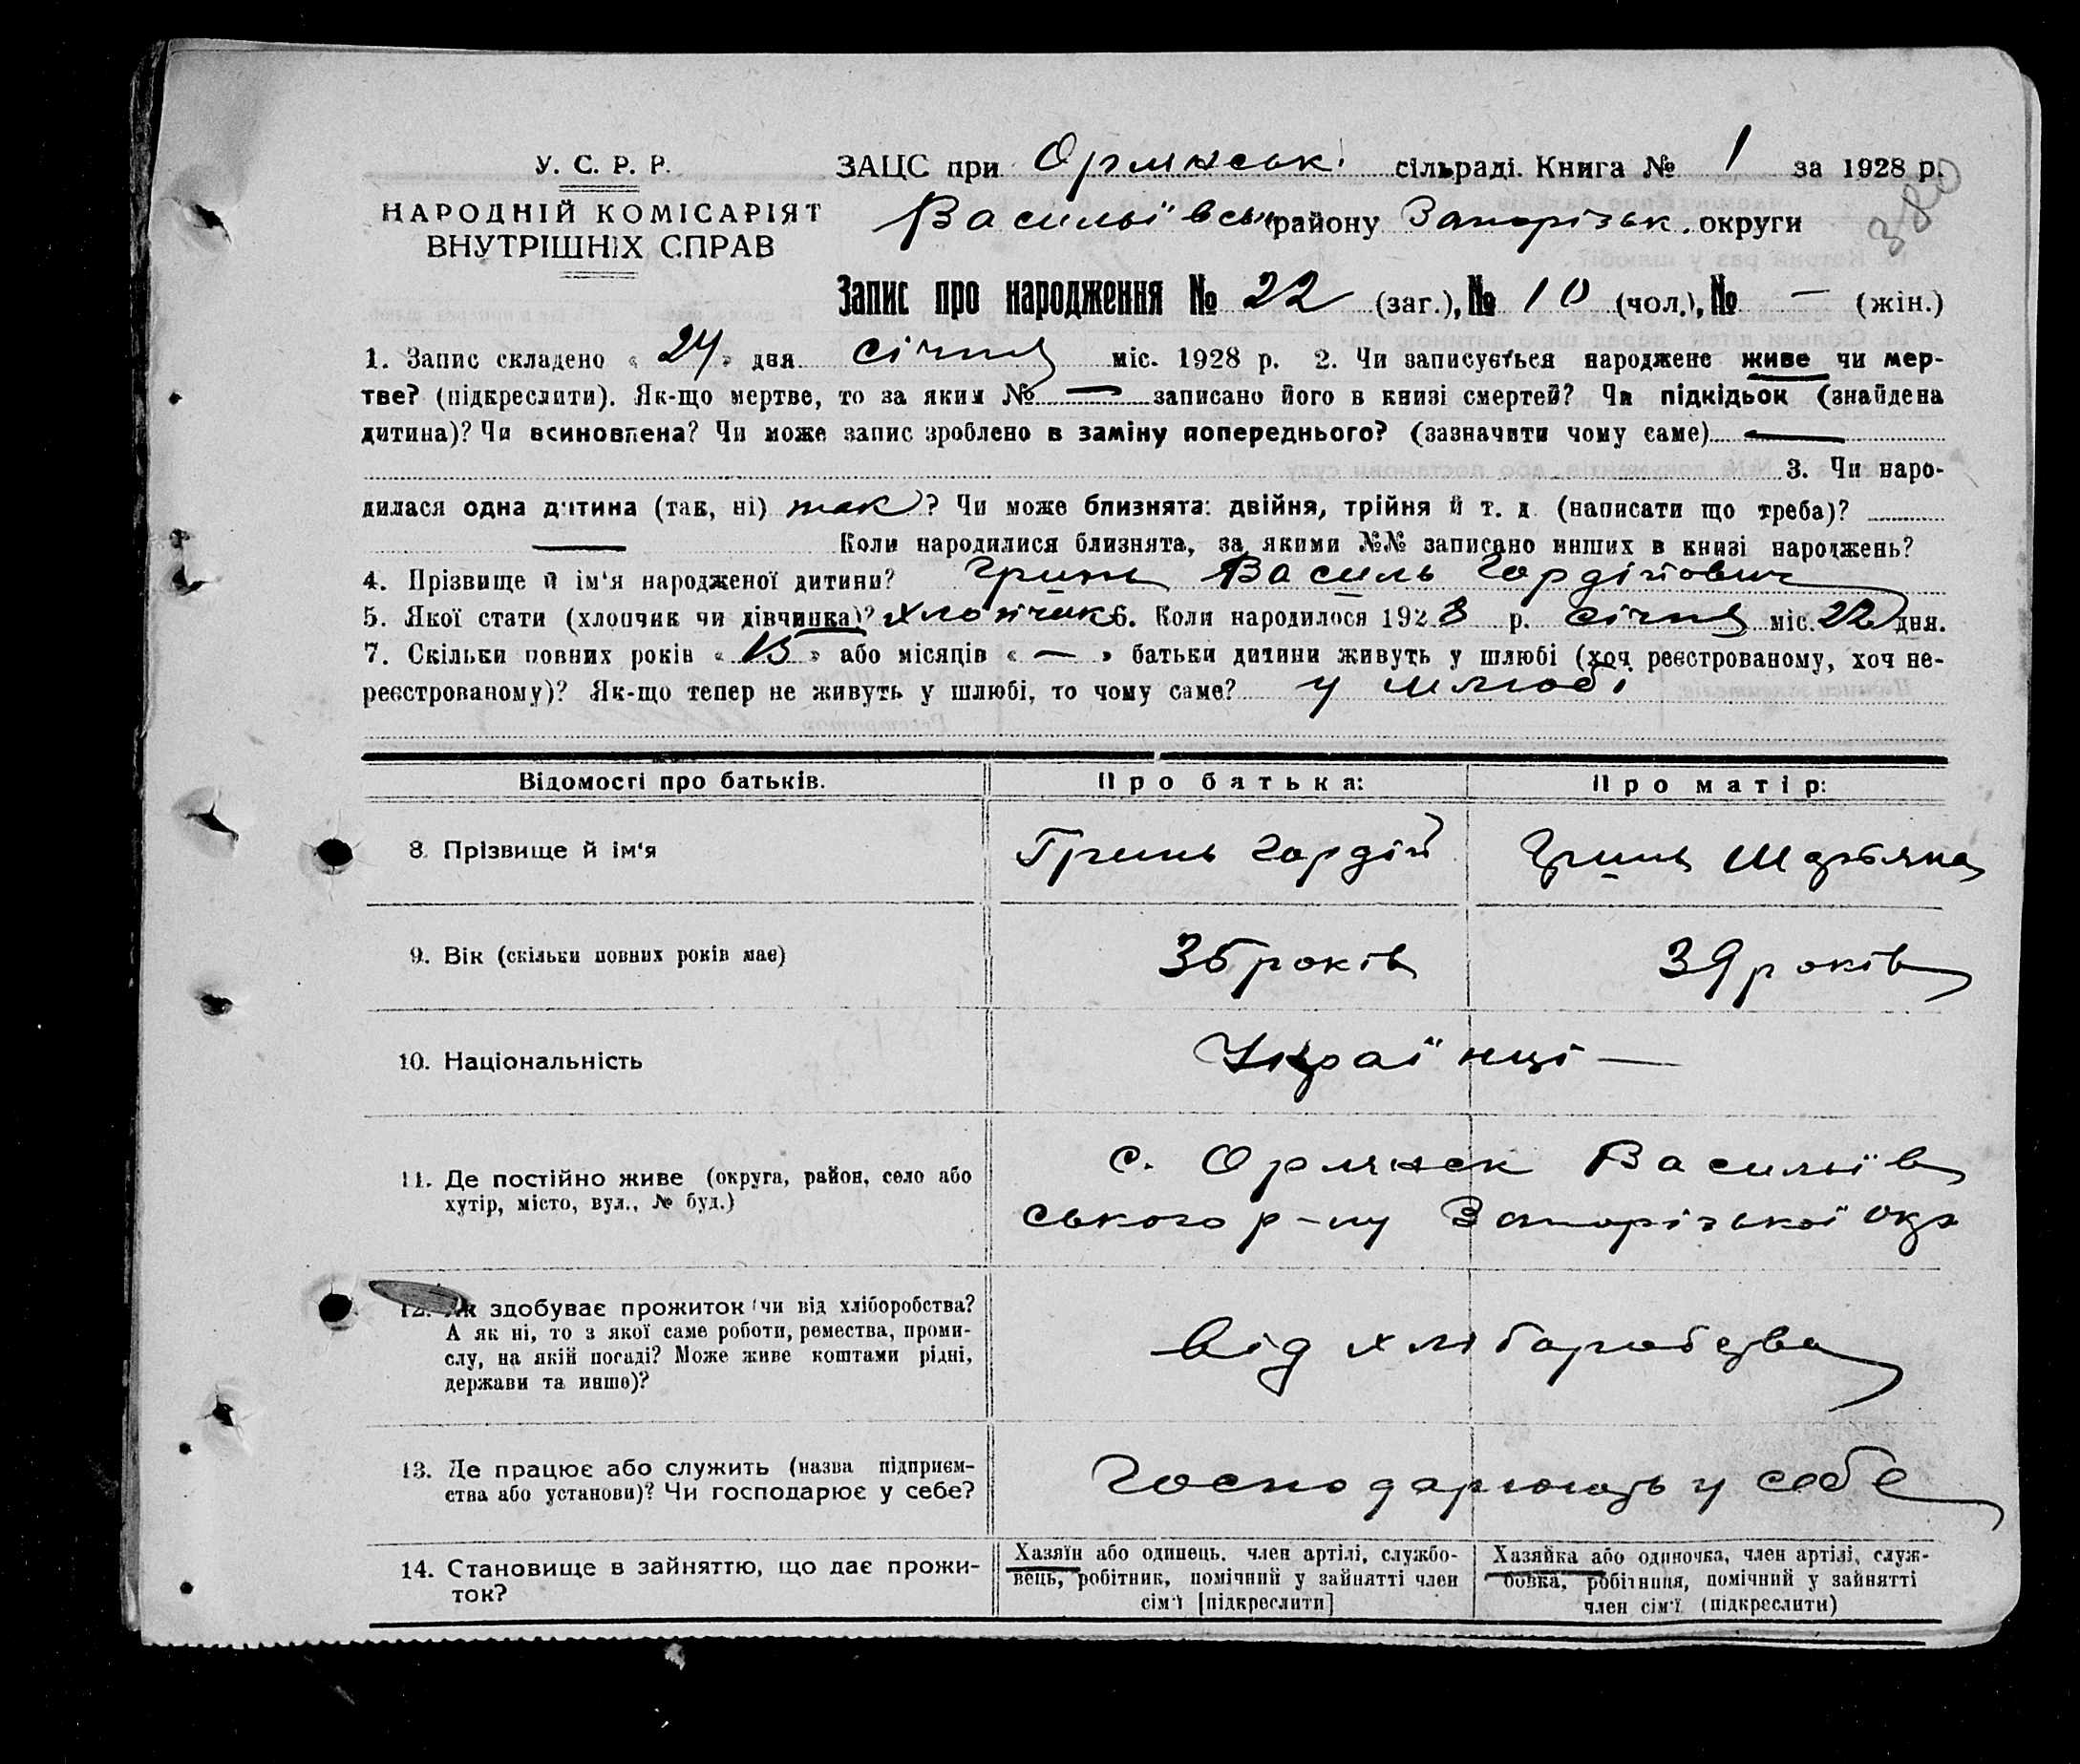 У. С. Р. Р.
НАРОДНІЙ КОМІСАРІЯТ
ВНУТРІШНІХ СПРАВ
ЗАЦС при Орлянськ. сільраді. Книга № 1 за 1928 р.
380
Васильївськ району Запорізьк. округи
Запис про народження № 22 (заг.), № 10 (чол.), № — (жін.)
1. Запис складено « 24 » дня січня міс. 1928 р. 2. Чи записується народжене живе чи мер-
тве? (підкреслити). Як-що мертве, то за яким № — записано його в книзі смертей? Чи підкідьок (знайдена
дитина)? Чи всиновлена? Чи може запис зроблено в заміну попереднього? (зазначити чому саме) —
3. Чи наро-
дилася одна дитина (так, ні) так? Чи може близнята: двійня, трійня й т. д. (написати що треба)?
— Коли народилися близнята, за якими №№ записано инших в книзі народжень?
4. Прізвище й ім'я народженої дитини? Гринь Василь Гордійович
5. Якої стати (хлопчик чи дівчинка)? хлопчик 6. Коли народилося 1928 р. січня міс. 22 дня.
7. Скільки повних років « 15 » або місяців « — » батьки дитини живуть у шлюбі (хоч реєстрованому, хоч не-
реєстрованому)? Як-що тепер не живуть у шлюбі, то чому саме? у шлюбі
Відомості про батьків. Про батька: Про матір:
8. Прізвище й ім'я Гринь Гордій Гринь Мар'яна
9. Вік (скільки повних років має) 36 років 39 років
10. Національність Українці —
11. Де постійно живе (округа, район, село або
хутір, місто, вул., № буд.)
с. Орлянск Васильїв
ського р-ну Запорізької окр
12. Як здобуває прожиток (чи від хліборобства?
А як ні, то з якої саме роботи, ремества, проми-
слу, на якій посаді? Може живе коштами рідні,
держави та инше)?
від хліборобства
13. Де працює або служить (назва підприєм-
ства або установи)? Чи господарює у себе?
Господарюють у себе
14. Становище в зайняттю, що дає прожи-
ток?
Хазяїн або одинець, член артілі, службо-
вець, робітник, помічний у зайнятті член
сім'ї [підкреслити]
Хазяйка або одиночка, член артілі, служ-
бовка, робітниця, помічний у зайнятті
член сім'ї (підкреслити)